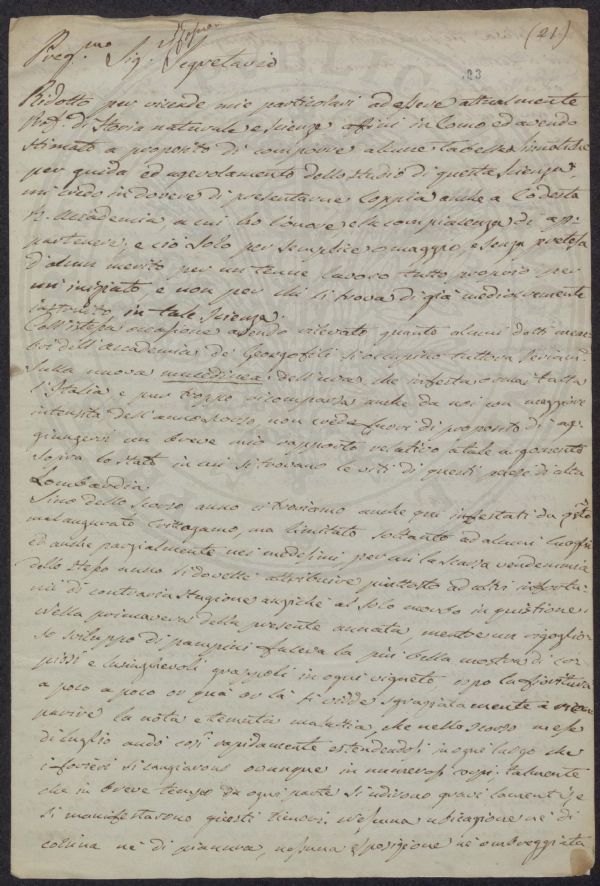 (21)
Preg.mo Sig. Segretario
23
Ridotto per vicende mie particolari ad essere attualmente
Prof. di Storia naturale e scienze affini in Como ed avendo
stimato a proposito di comporre alcune tabelle sinottiche
per guida ed agevolamento dello studio di questa scienza,
mi credo in dovere di presentarne coppia anche a Codesta
R. Accademia, a cui ho l'onore e la compiacenza di ap-
partenere, e ciò solo per semplice omaggio, e senza pretesa
d'alcun merito per un tenue lavoro tutto proprio per
un iniziato, e non per chi si trova di già mediocremente
instruito in tale scienza.
Coll'istessa occasione avendo rilevato quanto alcuni dotti mem-
bri dell'Accademia de' Georgofili si occupino tuttora seriam.
sulla nuova malattia dell'uva che infesta ormai tutta
l'Italia e pur troppo ricomparsa anche da noi con maggiore
intensità dell'anno scorso non credo fuori di proposito di ag-
giungervi un breve mio rapporto relativo a tale argomento
sopra lo stato in cui si trovano le viti di questi paesi di alta
Lombardia.
Sino dello scorso anno ci trovammo anche qui infestati da q.sto
malaugurato Crittogamo, ma limitato soltanto ad alcuni luoghi
ed anche parzialmente nei medesimi per cui la scarsa vendemmia
dello stesso anno si dovette attribuire piuttosto ad altri infortu-
nii di contraria stagione anziché al solo morbo in quistione.
Nella primavera della presente annata, mentre un rigoglio-
so sviluppo di pampini faceva la più bella mostra di co-
piosi e lusinghevoli grappoli in ogni vigneto dopo la fioritura
a poco a poco or quà or là si vidde sgraziatamente a ricom-
parire la nota e temuta malattia, che nello scorso mese
di luglio andò così rapidamente estendendosi in ogni luogo che
i forieri si cangiarono ovunque in numerosi corpi, talmente
che in breve tempo da ogni parte si udirono gravi lamenti, e
si manifestarono questi timori. Nessuna ubicazione né di
collina né di pianura, nessuna esposizione né ombreggiata